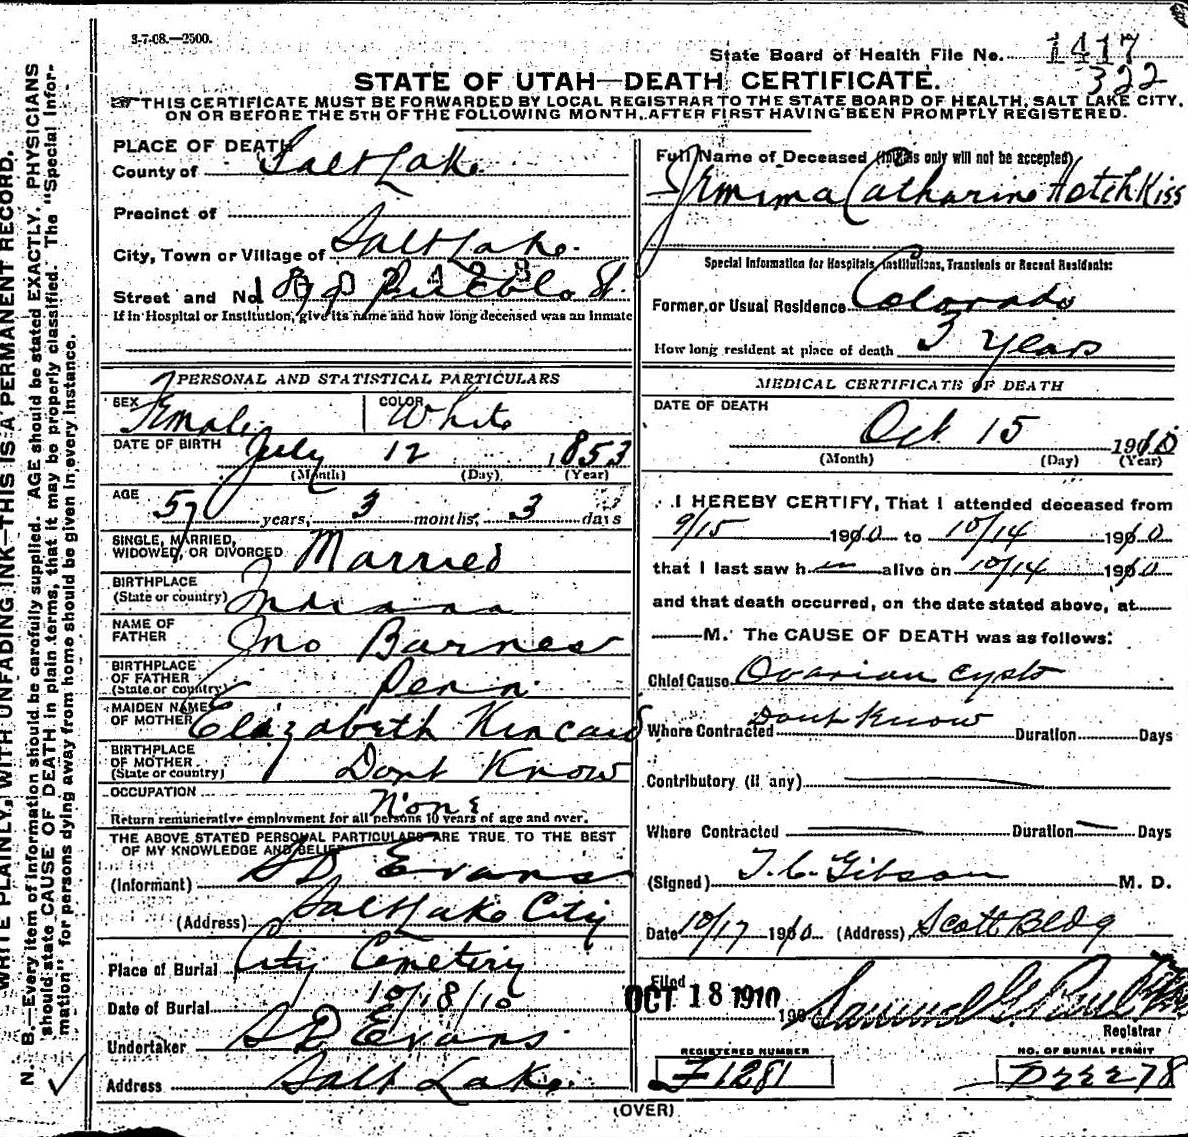 3-7-08.—2500.
State Board of Health File No. 1417
322
STATE OF UTAH—DEATH CERTIFICATE.
THIS CERTIFICATE MUST BE FORWARDED BY LOCAL REGISTRAR TO THE STATE BOARD OF HEALTH, SALT LAKE CITY,
ON OR BEFORE THE 5TH OF THE FOLLOWING MONTH, AFTER FIRST HAVING BEEN PROMPTLY REGISTERED.
WRITE PLAINLY, WITH UNFADING INK—THIS IS A PERMANENT RECORD.
N. B.—Every item of information should be carefully supplied. AGE should be stated EXACTLY. PHYSICIANS
should state CAUSE OF DEATH in plain terms, that it may be properly classified. The "Special Infor-
mation" for persons dying away from home should be given in every instance.
PLACE OF DEATH
County of Salt Lake
Precinct of
City, Town or Village of Salt Lake
Street and No. Pueblo St.
If in Hospital or Institution, give its name and how long deceased was an inmate
PERSONAL AND STATISTICAL PARTICULARS
SEX Female COLOR White
DATE OF BIRTH July 12 1853
(Month) (Day) (Year)
AGE 57 years, 3 months, 3 days
SINGLE, MARRIED,
WIDOWED, OR DIVORCED Married
BIRTHPLACE
(State or country) Indiana
NAME OF
FATHER Jno Barnes
BIRTHPLACE
OF FATHER
(State or country) Penn.
MAIDEN NAME
OF MOTHER Elizabeth Kincaid
BIRTHPLACE
OF MOTHER
(State or country) Dont Know
OCCUPATION None
Return remunerative employment for all persons 10 years of age and over.
THE ABOVE STATED PERSONAL PARTICULARS ARE TRUE TO THE BEST
OF MY KNOWLEDGE AND BELIEF
(Informant) S D Evans
(Address) Salt Lake City
Place of Burial City Cemetery
Date of Burial 10/18/10
Undertaker S D Evans
Address Salt Lake
Full Name of Deceased (Initials only will not be accepted)
Jemima Catharine HotchKiss
Special Information for Hospitals, Institutions, Transients or Recent Residents:
Former, or Usual Residence Colorado
How long resident at place of death 3 years
MEDICAL CERTIFICATE OF DEATH
DATE OF DEATH
Oct 15 1910
(Month) (Day) (Year)
I HEREBY CERTIFY, That I attended deceased from
9/15 1910 to 10/14 1910
that I last saw her alive on 10/14 1910
and that death occurred, on the date stated above, at
M. The CAUSE OF DEATH was as follows:
Chief Cause Ovarian cysts
Where Contracted Dont Know Duration Days
Contributory (if any)
Where Contracted Duration Days
(Signed) T. C. Gibson M. D.
Date 10/17 1910 (Address) Scott Bldg
Filed
OCT 18 1910 190
Samuel G. Paul
Registrar
REGISTERED NUMBER NO. OF BURIAL PERMIT
F1281 D22278
(OVER)